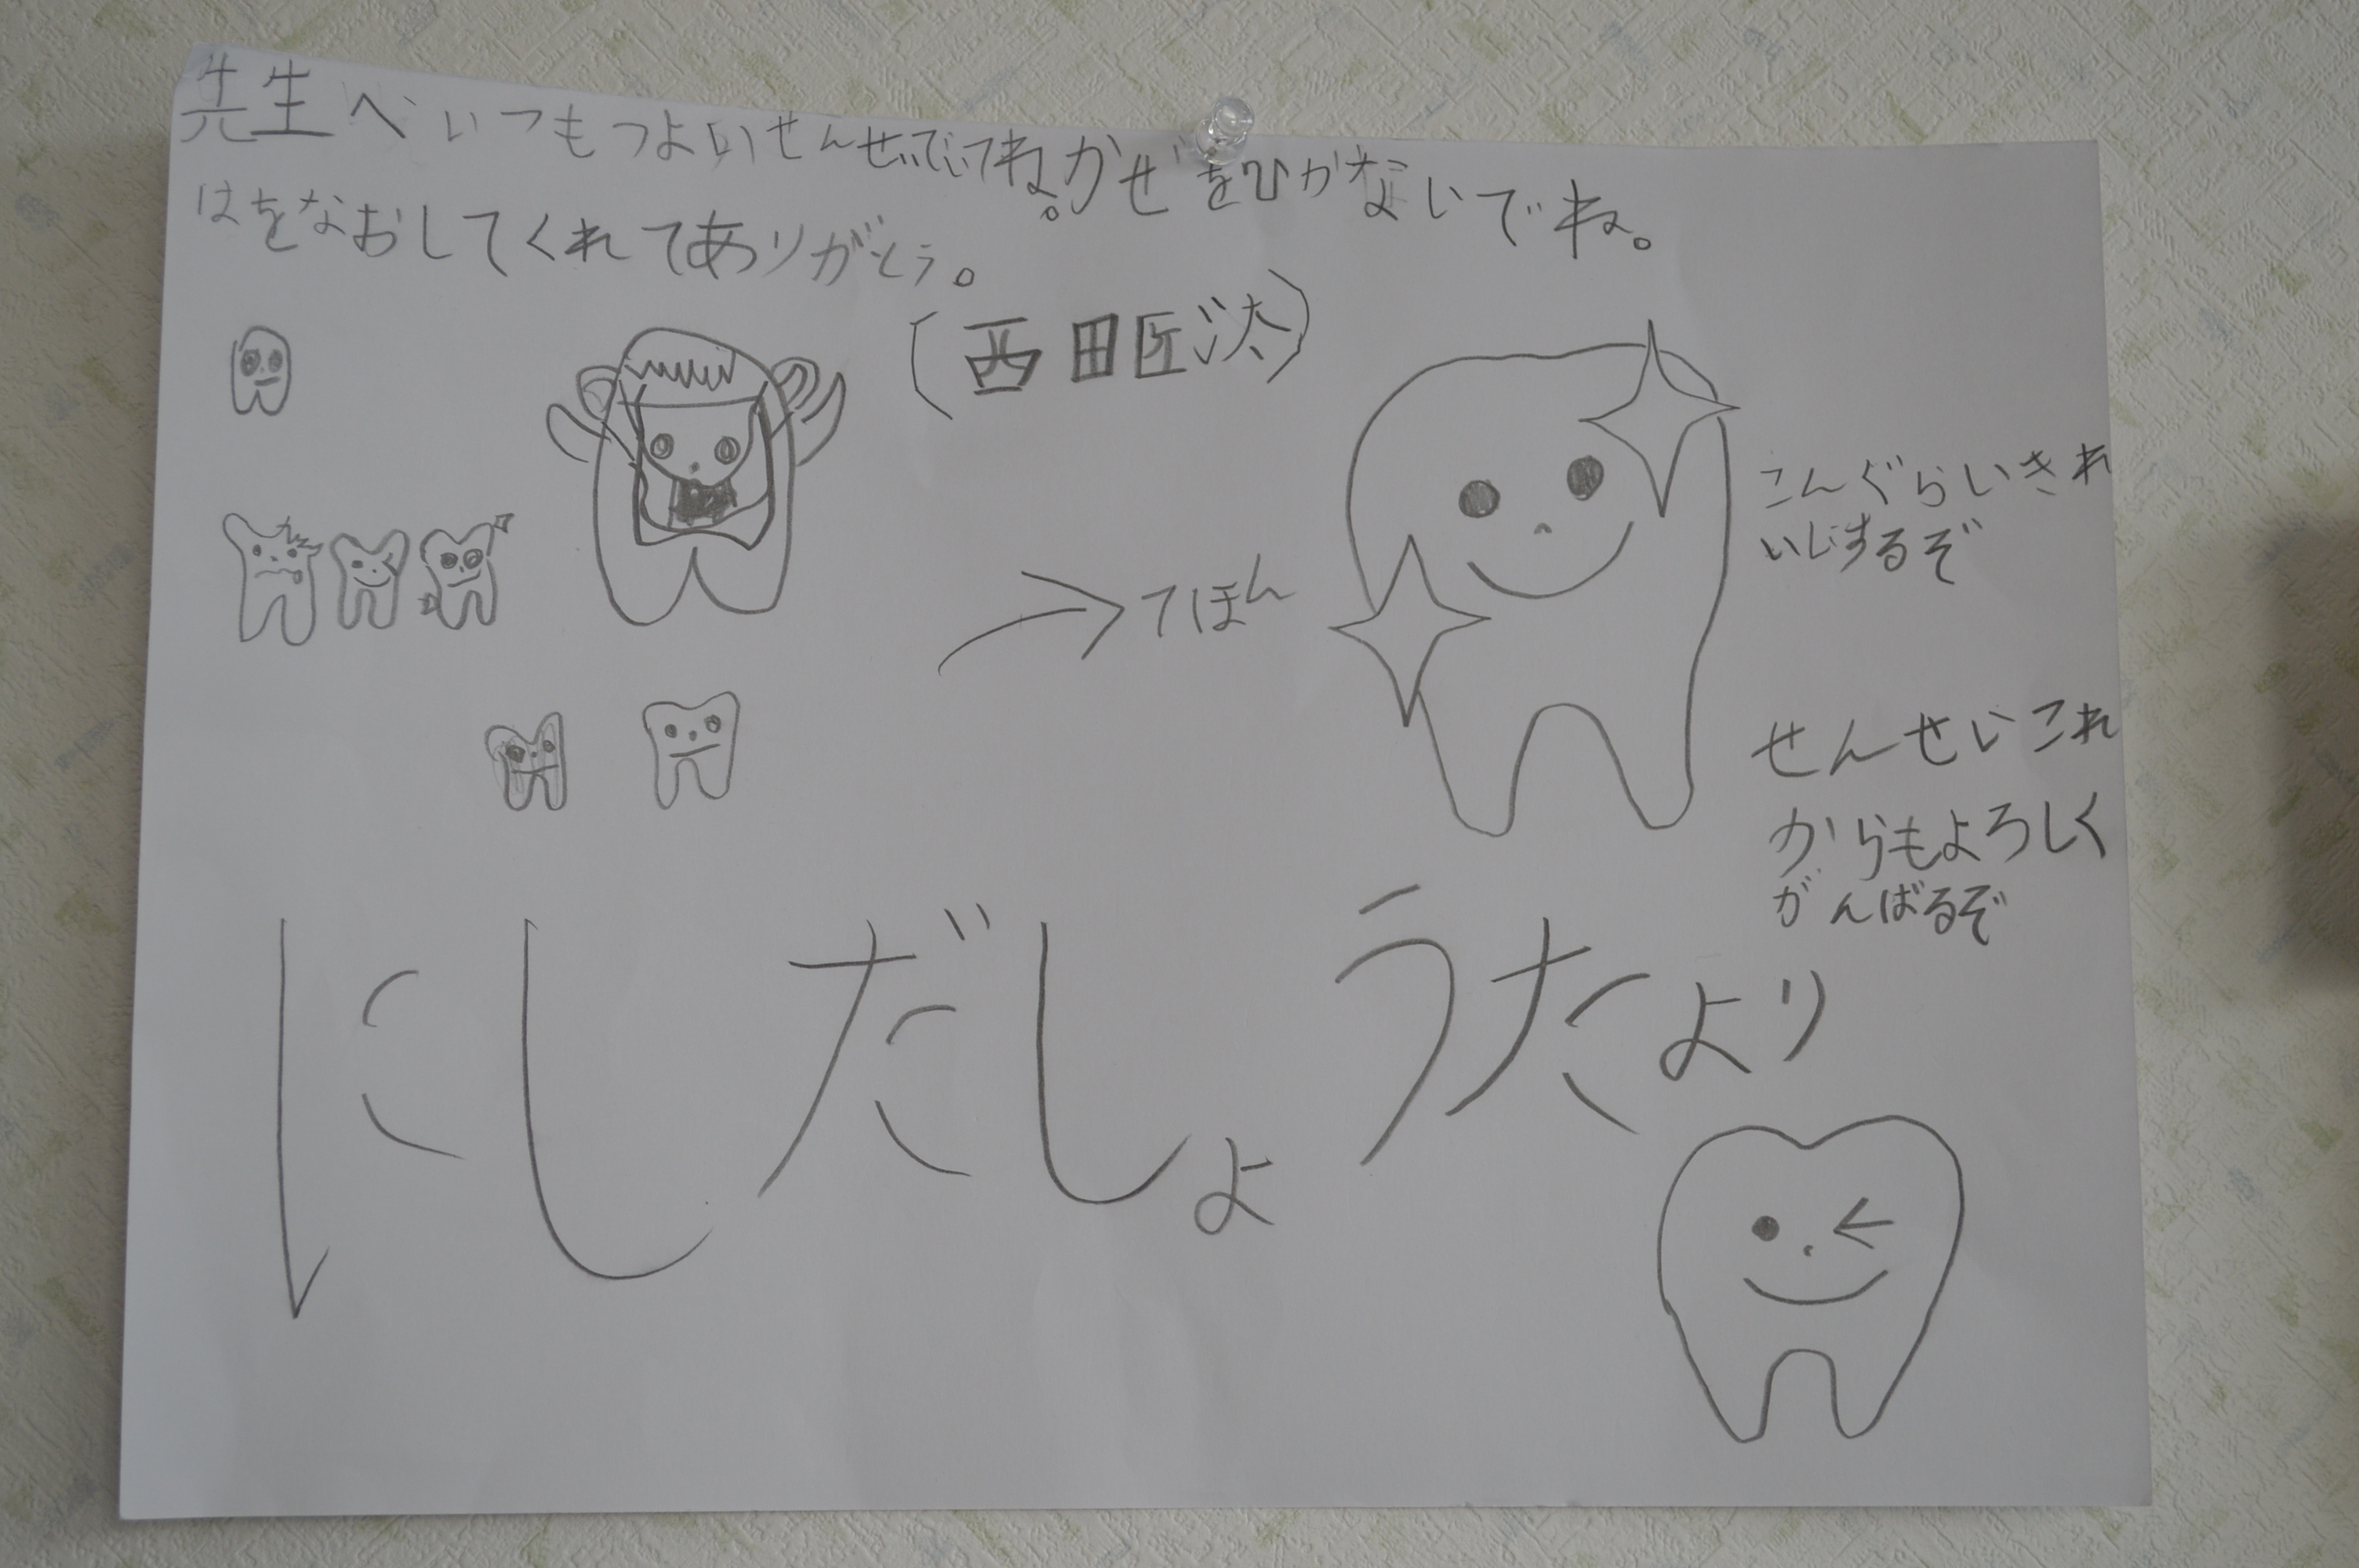 先生へいつもつよいせんせいでいてね。かぜをひかないでね。
はをなおしてくれてありがとう。
(西田匠汰)
てほん
こんぐらいきれ
いにするぞ
せんせいこれ
からもよろしく
がんばるぞ
にしだしょうたより